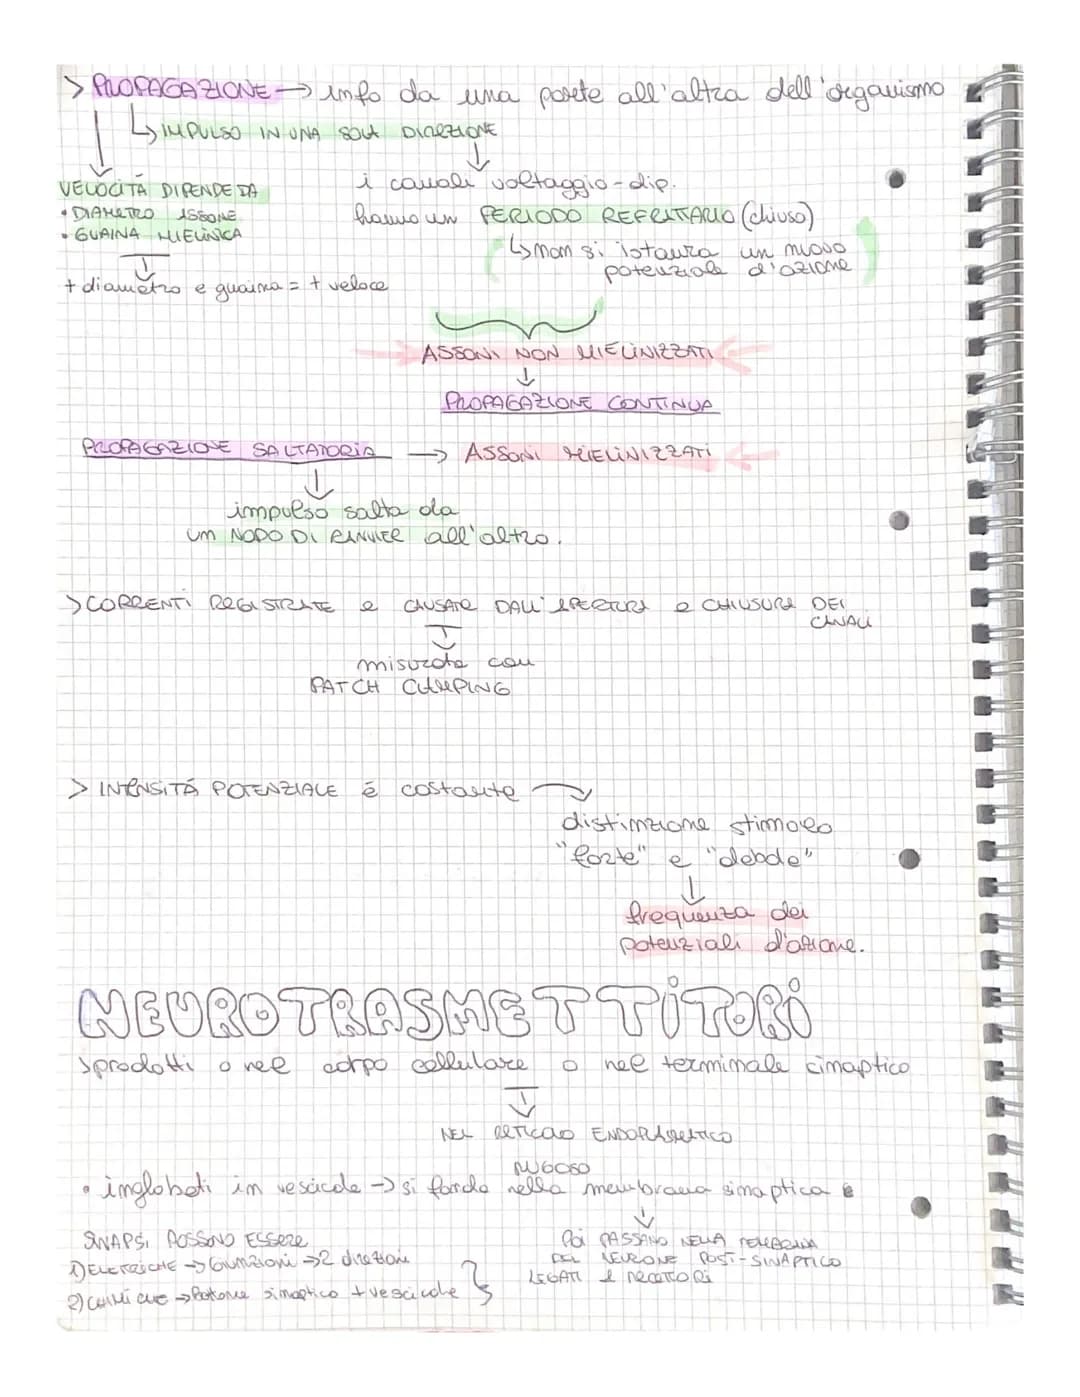 > PROPAGAZIONE → info da una parte all'altra dell'organismo
↳ IMPULSO IN UNA SOLA DIREZIONE
VELOCITÀ DIPENDE DA
• DIAMETRO ASSONE
• GUAINA MIELINICA
+ diametro e guaina = + veloce
i canali voltaggio-dip.
hanno un PERIODO REFRATTARIO (chiuso)
↳ non si istaura un nuovo
potenziale d'azione
ASSONI NON MIELINIZZATI
PROPAGAZIONE CONTINUA
PROPAGAZIONE SALTATORIA → ASSONI MIELINIZZATI
impulso salta da
un NODO DI RANVIER all'altro.
> CORRENTI REGISTRATE e CAUSATE DALL'APERTURA e CHIUSURA DEI
CANALI
misurate con
PATCH CLAMPING
> INTENSITÀ POTENZIALE è costante
distinzione stimolo
"forte" e "debole"
frequenza dei
potenziali d'azione.
NEUROTRASMETTITORI
> prodotti o nel corpo cellulare o nel terminale cinaptico
NEL RETICOLO ENDOPLASMATICO
RUGOSO
• inglobati in vescicole → si fondo nella membrana sinaptica e
poi PASSANO NELLA MEMBRANA
DEL NEURONE POST-SINAPTICO
LEGATI A RECETTORI
SINAPSI POSSONO ESSERE
1) ELETTRICHE → Giunzioni → 2 direzioni
2) CHIMICHE → Bottone sinaptico + vescicole